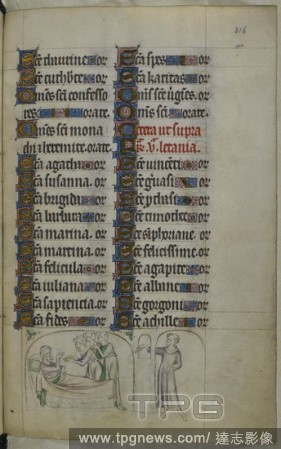 316
Sce taurine or
Sce cuthbte or
Omes sci confesso
res orate
Omes sci mona
chi z heremite orate
Sca agatha or
Sca susanna or
Sca brigida or
Sca barbara or
Sca marina or
Sca martina or
Sca felicula or
Sca iuliana or
Sca sapiencia or
Sca fides or
Sca spes or
Sca karitas or
Omes sce ugies or
Omes sci orate
Cetera ut supra
letania
Sce uincenti or
Sce geruasi or
Sce prothasi or
Sce timothee or
Sce siphoriane or
Sce felicissime or
Sce agapite or
Sce albane or
Sce gorgoni or
Sce achillee or
TPG
www.tpgnews.com/ 達志影像